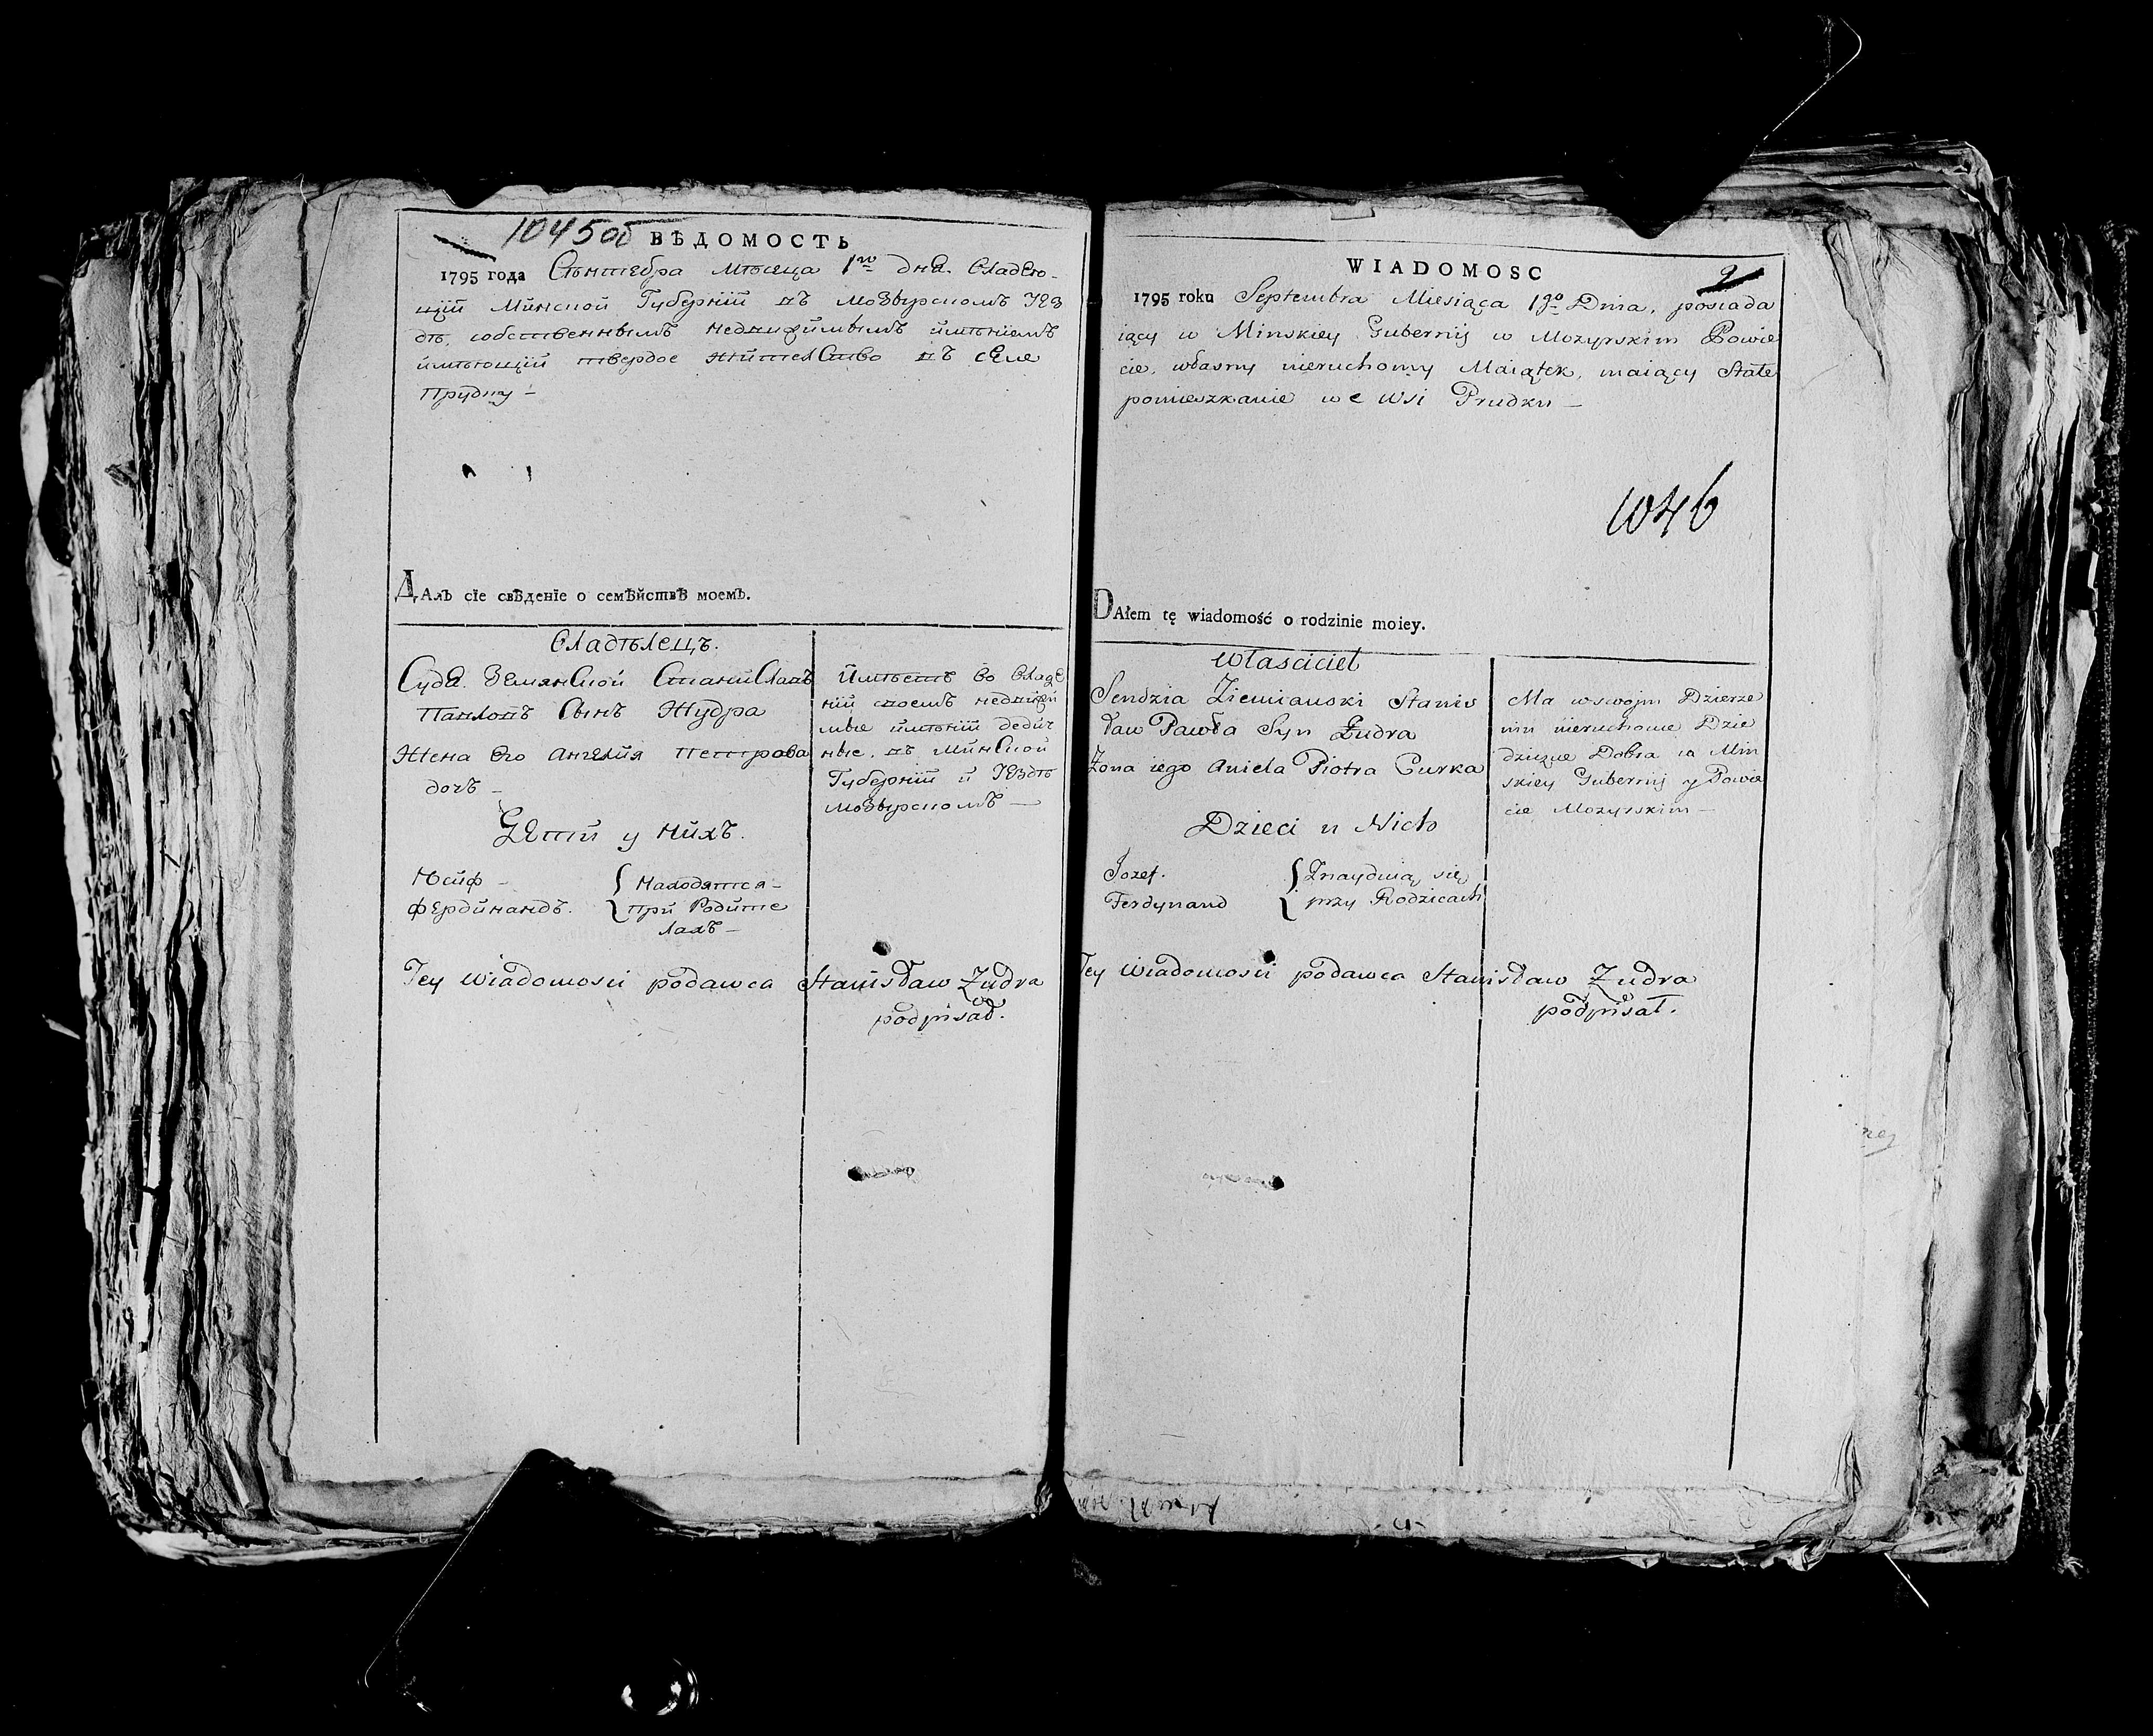 1045об ВѢДОМОСТЬ
1795 года Сѣнтебра мѣсеца 1го дна. владею-
щій Минской Губерніи въ мозырскомъ уез
дѣ, собственнымъ недвижимымъ имѣніемъ
имѣющій твердое жителство въ селе
Прудку -
Далъ сіе свѣденіе о семѣйствѣ моемъ.
владѣлецъ.
Суда. Земянской Станиславъ
Павловъ Сынъ Жудра
Жена Его Ангелія Петрова
дочь -
Дети у нихъ.
Юсиф -
Фердинандъ.
Находятся -
при Родите
лахъ -
Имѣетъ во владе
ніи своемъ недвижи
мые имѣніи дедич
ные. въ минской
Губерніи и Уездѣ
мозырскомъ -
Tey wiadomosci podawca Stanisław Żudra
podpisał.
WIADOMOSC 2
1795 roku Septembra Miesiąca 1go Dnia, posiada
iący w Minskiey Gubernij w Mozyrskim Powie
cie, własny nieruchomy Maiątek, maiący Stałe
pomieszkanie we wsi Prudku -
1046
DAłem tę wiadomość o rodzinie moiey.
właściciel
Sendzia Ziemianski Stanis
ław Pawła Syn Żudra
Żona iego Aniela Piotra Curka
Dzieci u Nich
Jozef.
Ferdynand
Znaydują się
przy Rodzicach
Ma w swojm Dzierże
niu nieruchome Dzie
dziczne Dobra w Min
skiey Gubernij y Powie
cie Mozyrskim -
Tey wiadomosci podawca Stanisław Żudra
podpisał.